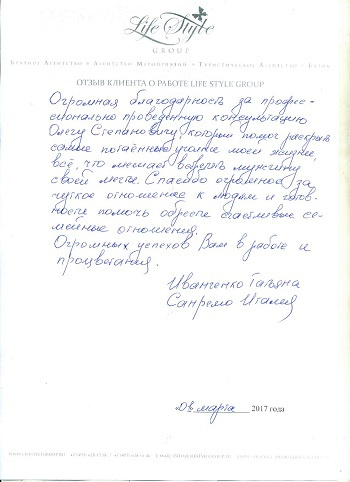 Life Style
GROUP
Брачное Агентство • Агентство Мероприятий • Туристическое Агентство •
ОТЗЫВ КЛИЕНТА О РАБОТЕ LIFE STYLE GROUP
Огромная благодарность за профес-
сионально проведенную консультацию
Олегу Степановичу, который помог раскрыть
самые потаённые уголки моей жизни,
всё, что мешает встретить мужчину
своей мечты. Спасибо огромное за
чуткое отношение к людям и готов-
ность помочь обрести счастливые се-
мейные отношения.
Огромных успехов Вам в работе и
процветания.
Иванченко Татьяна
Санремо Италия
марта 2017 года